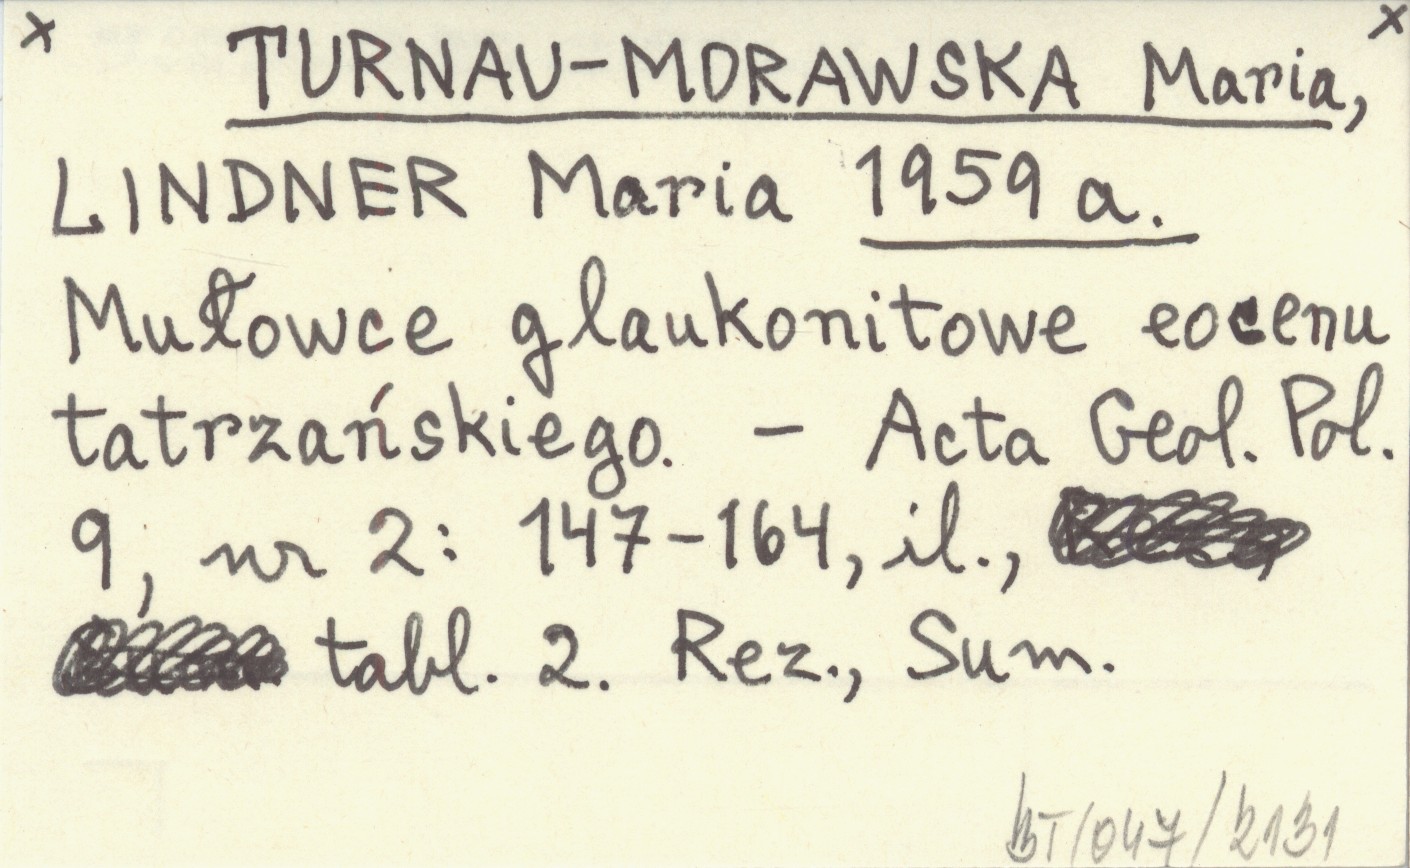 x x
TURNAU-MORAWSKA Maria,
LINDNER Maria 1959 a.
Mułowce glaukonitowe eocenu
tatrzańskiego. - Acta Geol. Pol.
9, nr 2: 147-164, il.,
tabl. 2. Rez., Sum.
BT/047/2131